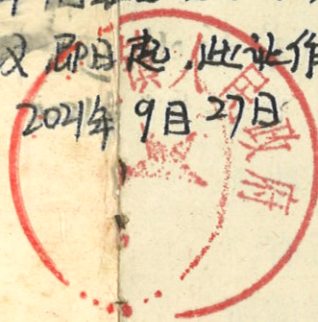 又即日起,此证作
2021年9月27日
人民政府